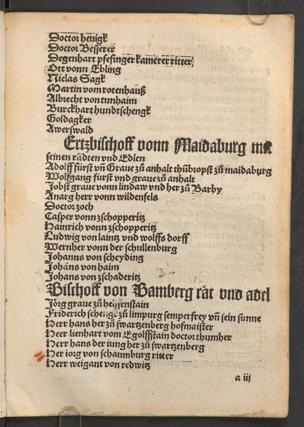 Doctor henigk
Doctor Besserer
Degenhart pfefinger kamerer ritter
Ott vonn Ebling
Niclas Sagk
Martin vom rotenhauß
Albrecht von tunhaim
Burckhart hundtschengk
Goldagker
Awerswald
Ertzbischoff vonn Maidaburg mit
seinen rädten vnd Edlen
Adolff fürst vñ Graue zů anhalt thůbropst zů maidaburg
Wolffgang fürst vnd graue zů anhalt
Jobst graue vonn lindaw vnd her zů Barby
Anarg herr vonn wildenfels
Doctor zoch
Casper vonn zschopperitz
Hainrich vonn zschopperitz
Ludwig von laintz vnd wolffs dorff
Wernher vonn der schullenburg
Johanns von scheyding
Johans von haim
Johans von zschaderitz
Bischoff von Bamberg rät vnd adel
Jörg graue zů
Friderich schengk zů limpurg semperfrey vñ sein sunne
Herr hans her zů swartzenberg hofmaister
Herr lienhart vom Egolffstain doctor thumher
Herr hans der iung her zů swartzenberg
Her iorg von schaumburg ritter
Herr weigant von redwitz
a iii